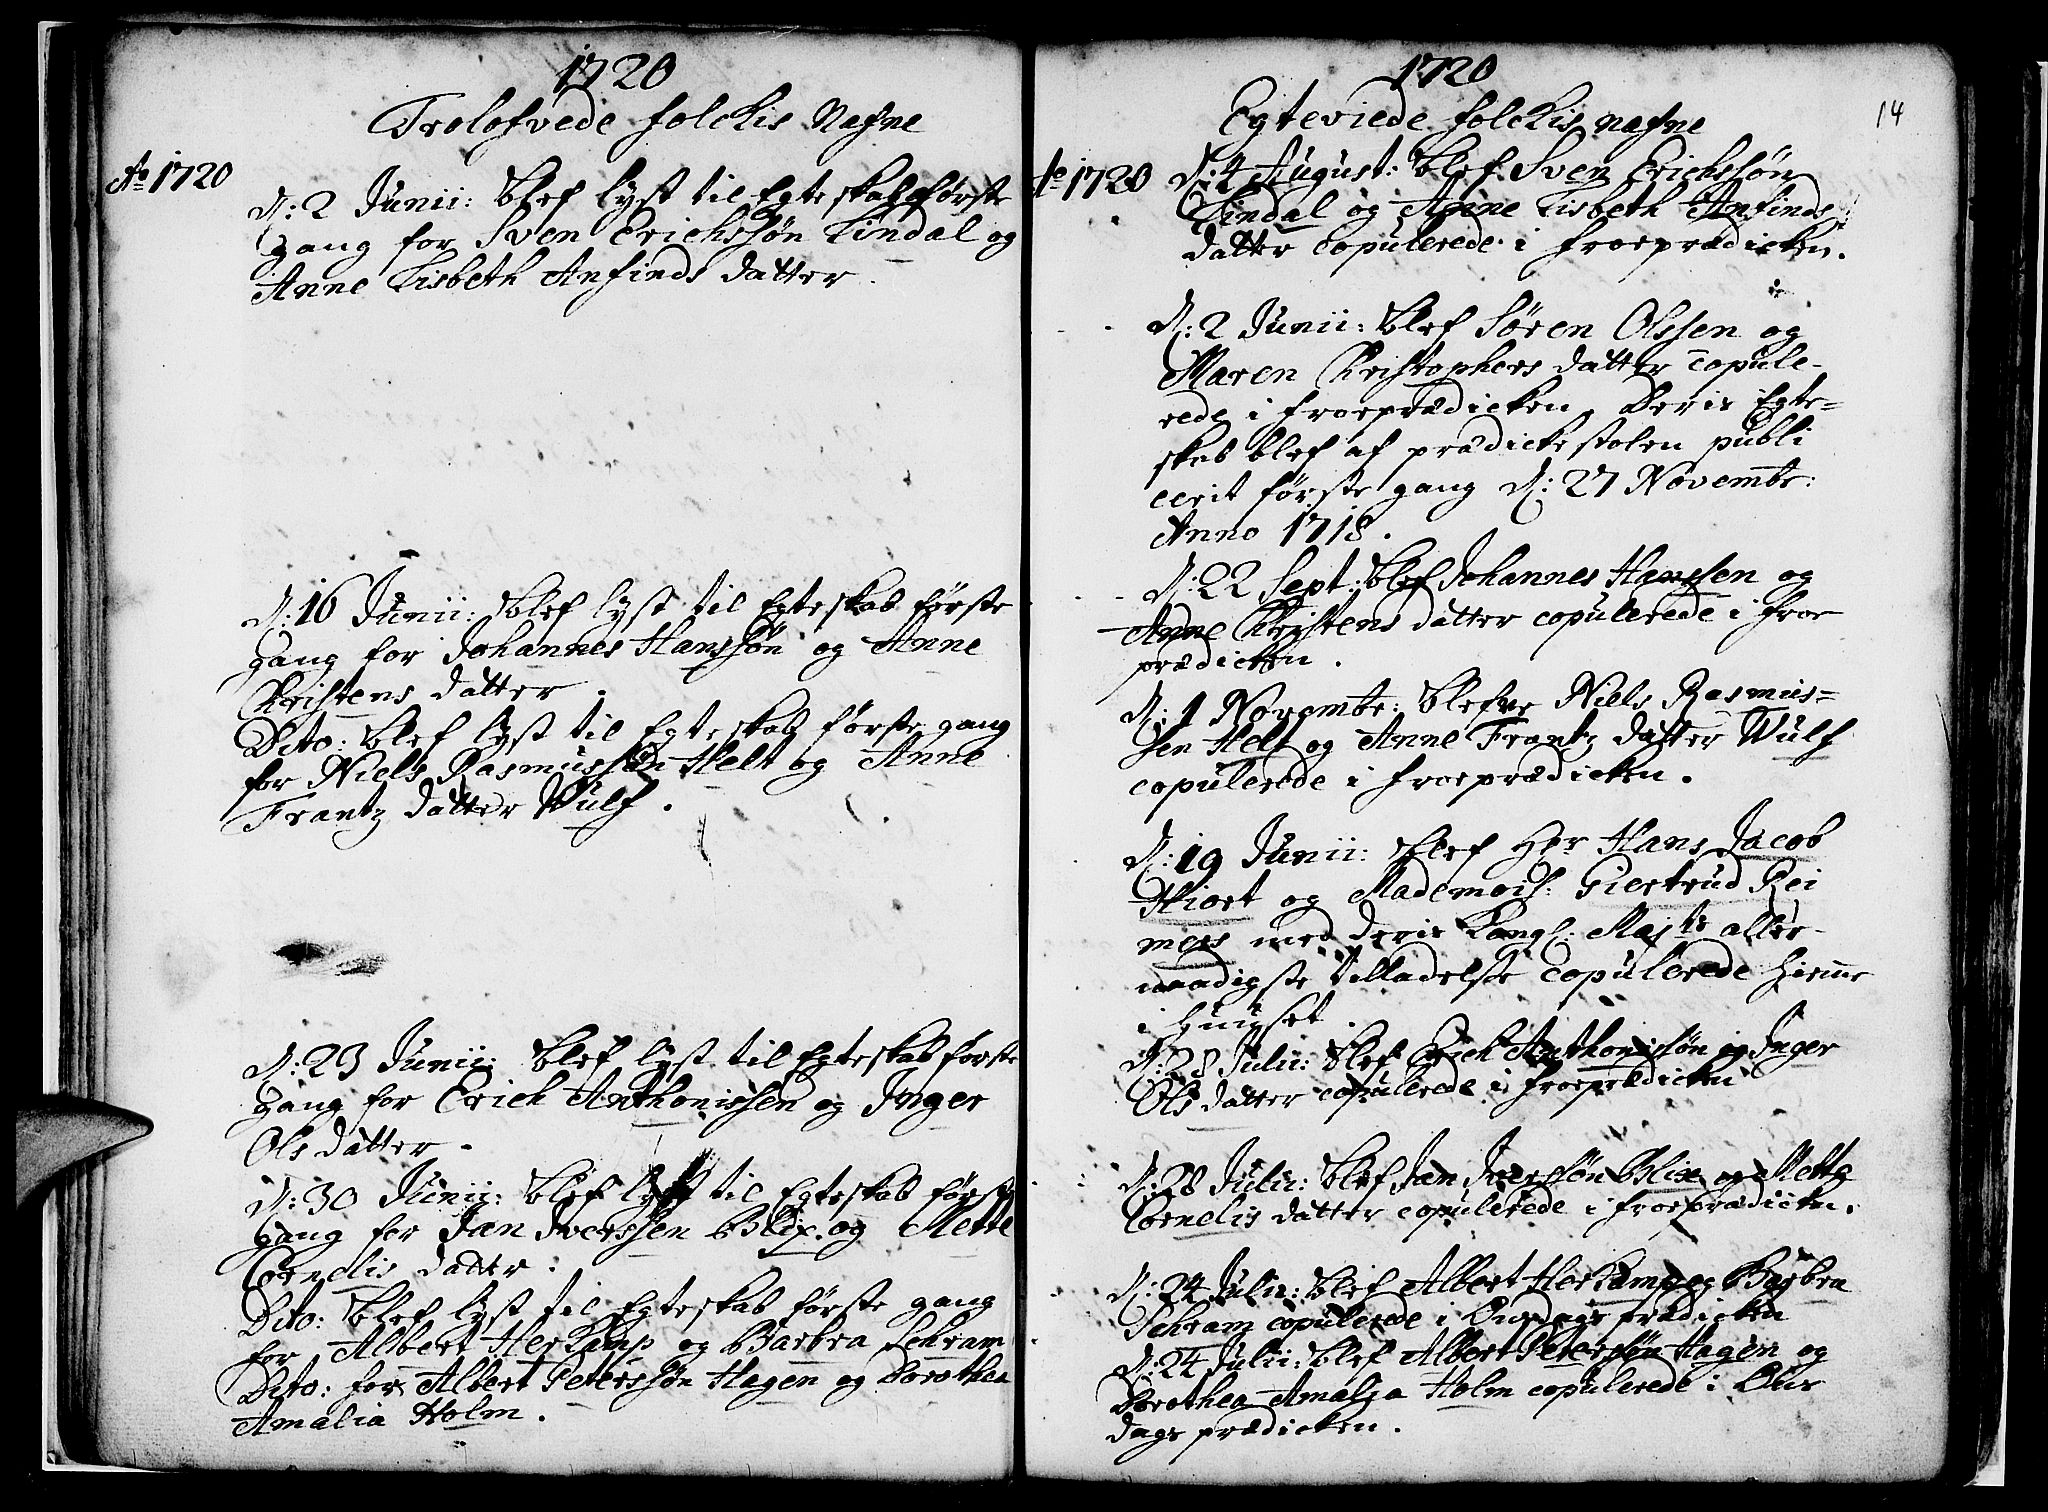 1720
Trolofvede folckis Nafne
Ao 1720
D: 2 Junii: blef lyst til Egteskab første
gang for Sven Erichssøn Lindal og
Anne Lisbeth Anfinds datter.
D: 16 Junii: blef lyst til Egteskab første
gang for Johannes Hanssøn og Anne
Christens datter.
Dito: blef lyst til Egteskab første gang
for Niels Rasmussøn Helt og Anne
Frantz datter Wulf.
D: 23 Junii: blef lyst til Egteskab første
gang for Erich Anthonissen og Inger
Ols datter.
D: 30 Junii: blef lyst til Egteskab første
gang for Jan Iverssen Blix og Mette
Cornelis datter:
Dito: blef lyst til Egteskab første gang
for Albert Herkamp og Barbra Schram
Dito: for Albert Peterssøn Hagen og Dorothea
Amalia Holm.
1720
Egteviede folckis nafne
14
Ao 1720
D: 4 August: blef Sven Erichssøn
Lindal og Anne Lisbeth Anfinds
datter copulerede i froeprædicken.
D: 2 Junii: blef Søren Olssen og
Maren Christophers datter copule-
rede i froeprædicken, Deris Egte=
skab blef af prædickestolen publi
cerit første gang D: 27 Novembr:
Anno 1718.
D: 22 Sept: blef Johannes Hanssen og
Anne Christens datter copulerede i froe
prædicken.
D: 1 Novembr: blefve Niels Rasmus=
sen Helt og Anne Frantz datter Wulf
copulerede i froeprædicken.
D: 19 Junii: blef Her Hans Jacob
Hiort og Mademois: Giertrud Rei
mers med deris Kongl: Majts aller-
naadigste tilladelse copulerede hieme
i huuset.
D: 28 Julii: blef Erich Anthonissøn og Inger
Ols datter copulerede i froeprædicken
D: 28 Julii: blef Jan Iverssøn Blix og Mette
Cornelis datter copulerede i froeprædicken.
D: 24 Julii: blef Albert Herkamp og Barbra
Schram copulerede i Onsdags prædicken
D: 24 Julii: blef Albert Peterssøn Hagen og
Dorothea Amalja Holm copulerede i Ons
dags prædicken.